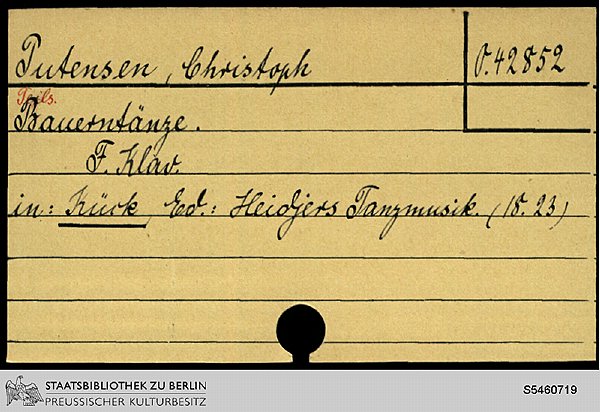 Putensen, Christoph
O. 42852
Teils.
Bauerntänze.
F. Klav.
in: Kück, Ed.: Heidjers Tanzmusik. (18. 23)
STAATSBIBLIOTHEK ZU BERLIN
PREUSSISCHER KULTURBESITZ
S5460719